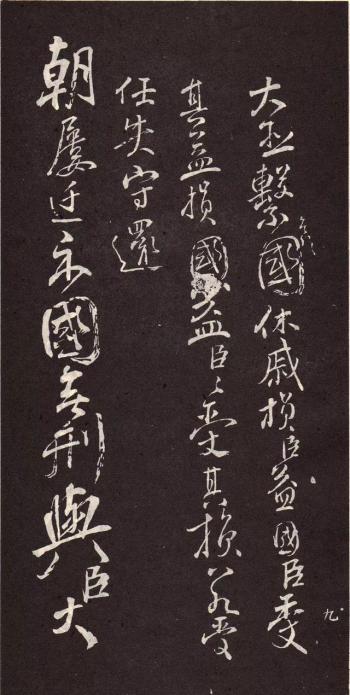 大臣繫國休戚損臣益國臣受
其益損國益臣〻受其損若受
任失守還
朝屢遷示國無刑與臣大
九